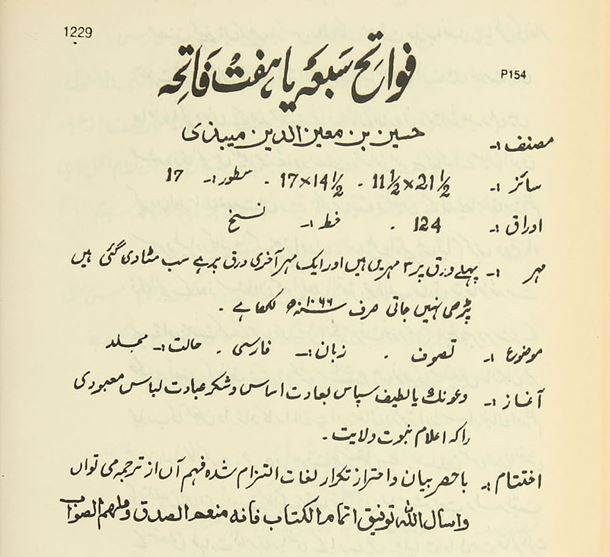 1229
فواتح سبعہ یا ہفت فاتحہ
P154
مصنف :۔ حسین بن معین الدین میبذی
سائز :۔ 11½×21½ ۔ 17×14½ ۔ سطور :۔ 17
اوراق :۔ 124 ۔ خط :۔ نسخ
مہر :۔ پہلے ورق پر ۳ مہریں ہیں اور ایک مہر آخری ورق پر ہے سب مٹادی گئی ہیں
پڑھی نہیں جاتی صرف ۱۰۶۶ھ لکھا ہے ۔
موضوع :۔ تصوف ۔ زبان :۔ فارسی ۔ حالت :۔ مجلد
آغاز :۔ وعونك یا لطیف سپاس بعادت اساس و شکر عبادت لباس معبودی
راکہ اعلام نبوت ولایت ۔
اختتام :۔ باحصر بیان و احتراز تکرار لغات التزام شدہ فہم آں از ترجمہ می تواں
واسال اللہ توفیق اتمام الکتاب فانه منعم الصدق وملهم الصواب